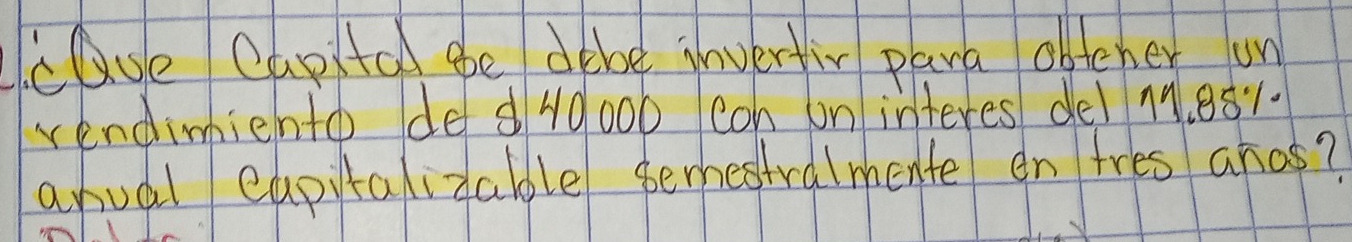 ¿Que Capital se debe invertir para obtener un
rendimiento de $40000 con un interes del 11.85%
anual capitalizable semestralmente en tres años?